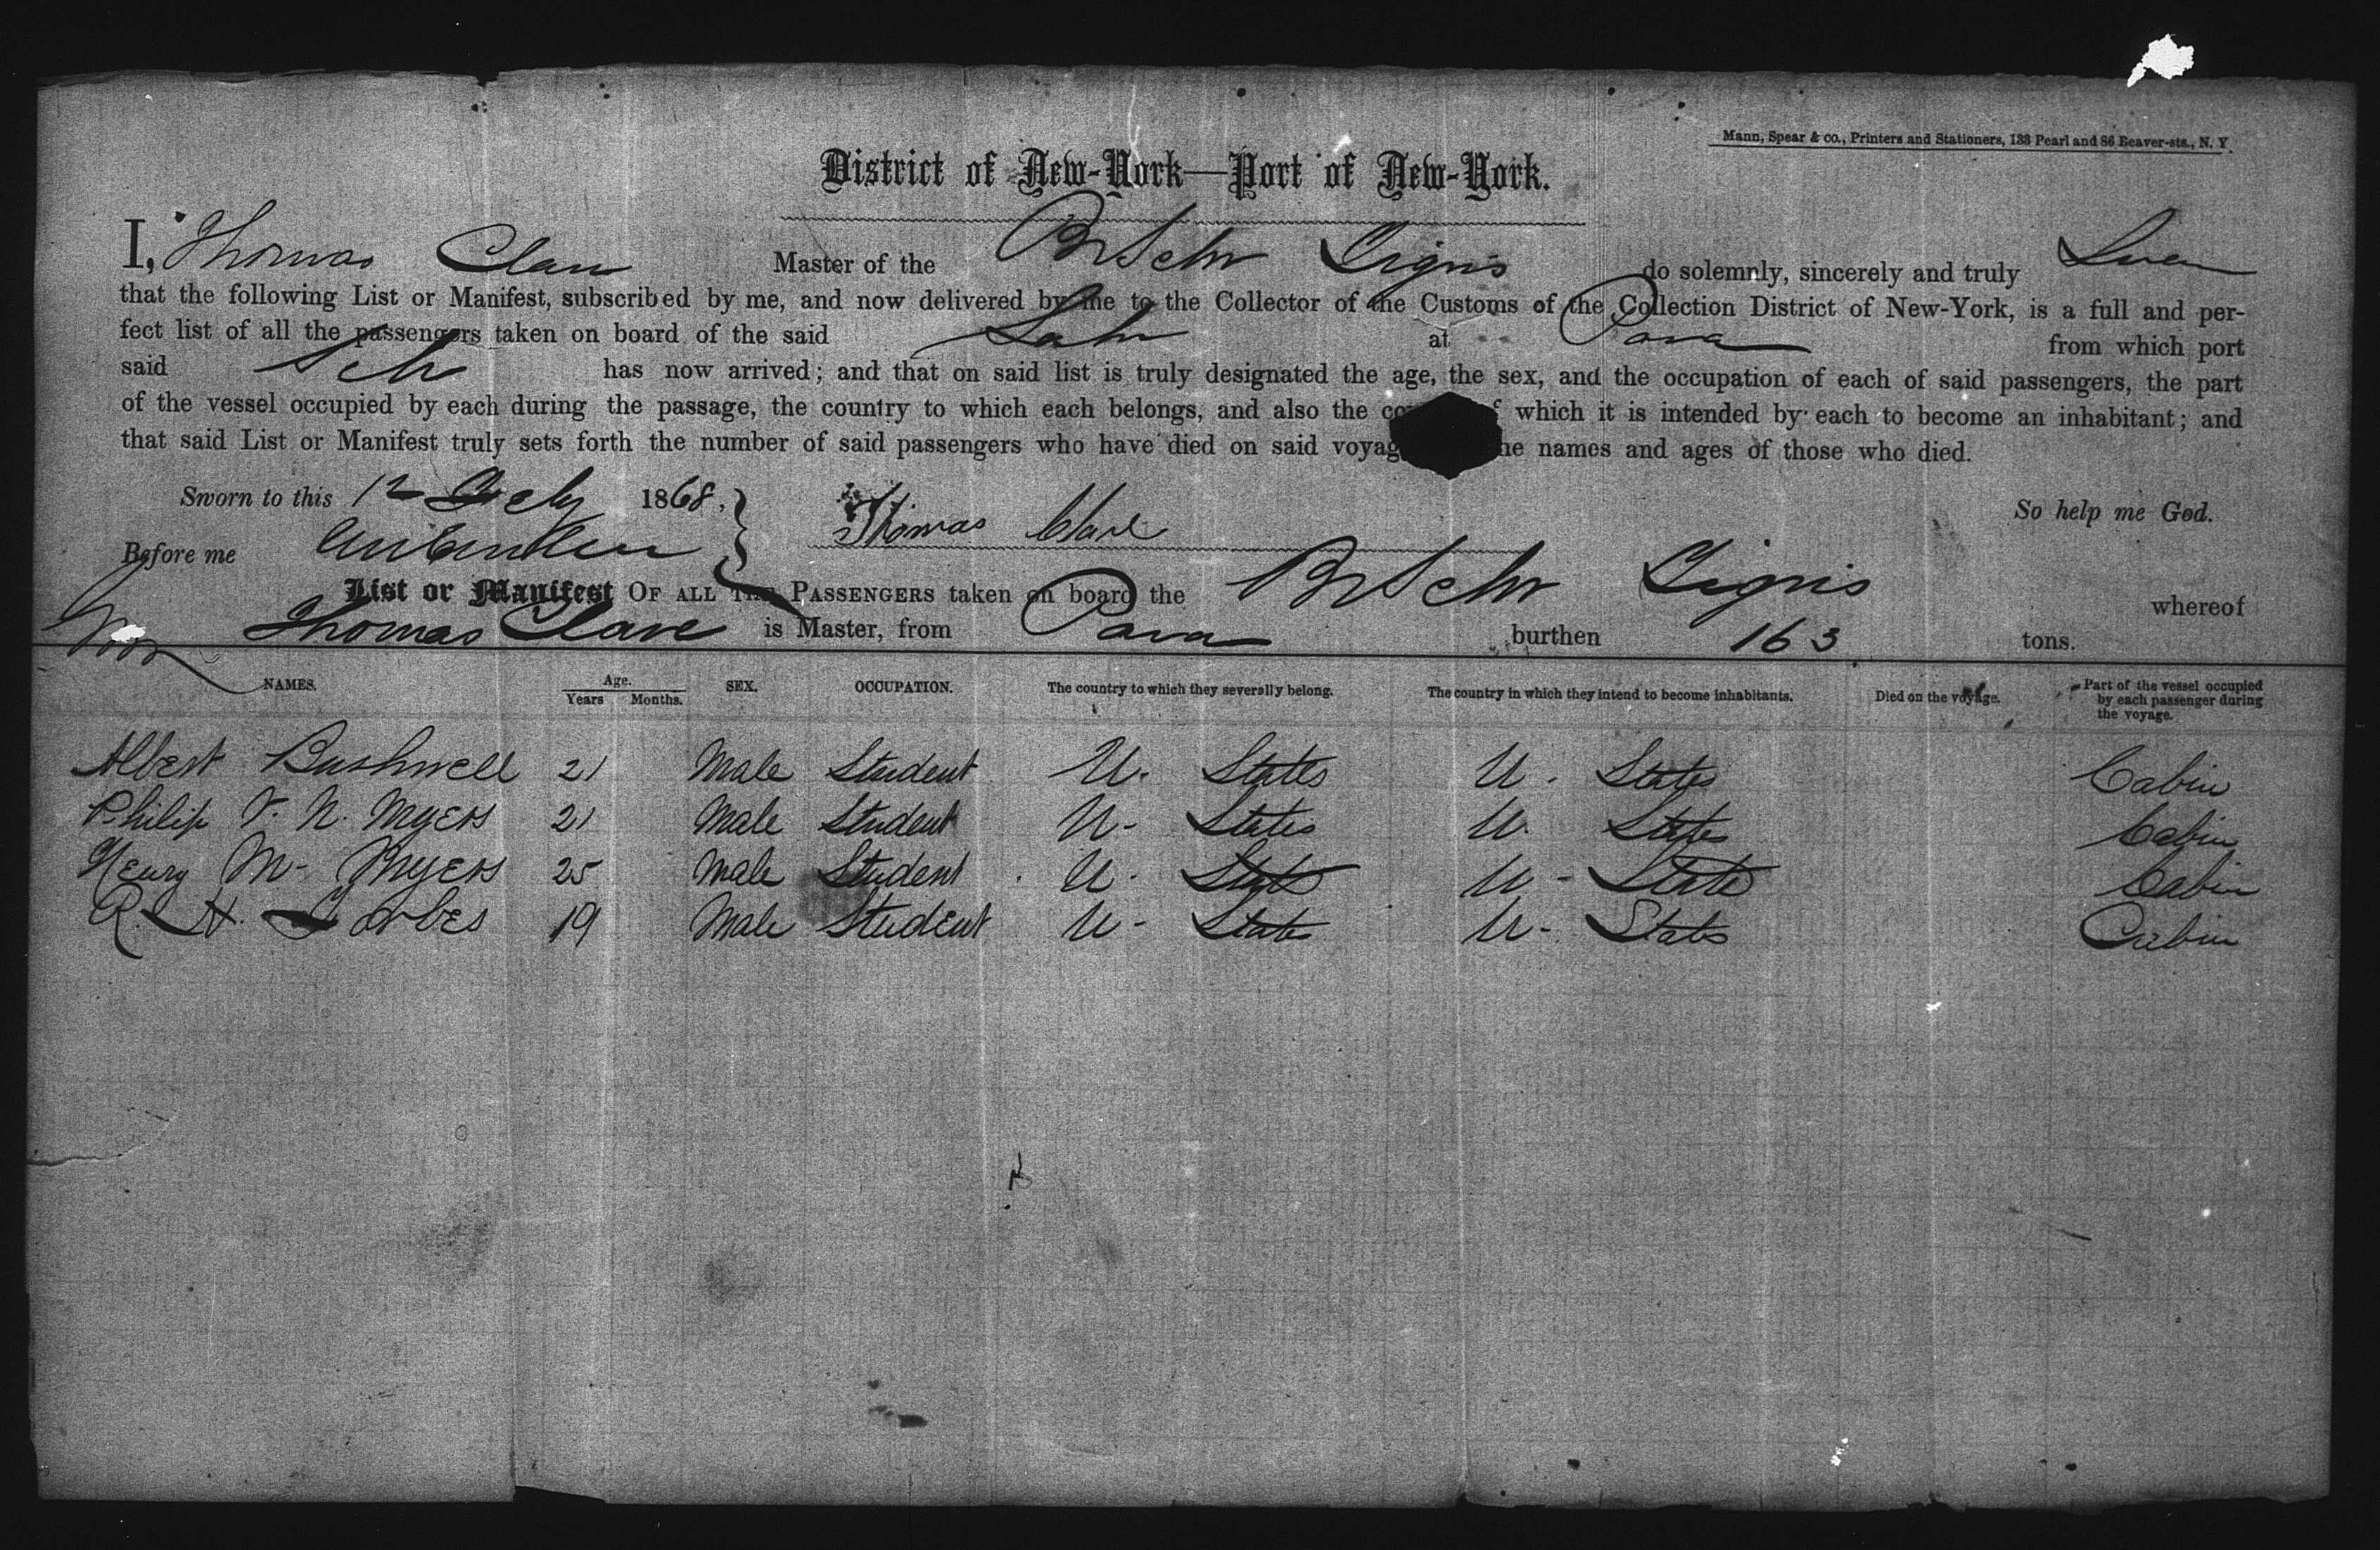 Mann, Spear & co., Printers and Stationers, 133 Pearl and 86 Beaver-sts., N. Y.
District of New-York—Port of New-York.
I, Thomas Master of the Br Schr Tigris do solemnly, sincerely and truly
that the following List or Manifest, subscribed by me, and now delivered by me to the Collector of the Customs of the Collection District of New-York, is a full and per-
fect list of all the passengers taken on board of the said Schr at Para from which port
said Sch has now arrived; and that on said list is truly designated the age, the sex, and the occupation of each of said passengers, the part
of the vessel occupied by each during the passage, the country to which each belongs, and also the which it is intended by each to become an inhabitant; and
that said List or Manifest truly sets forth the number of said passengers who have died on said names and ages of those who died.
Sworn to this 12 1868, So help me God.
Thomas
Before me
List or Manifest OF ALL THE PASSENGERS taken on board the Br Schr Tigris whereof
Thomas is Master, from Para burthen 163 tons.
NAMES. Age. Years Months. SEX. OCCUPATION. The country to which they severally belong. The country in which they intend to become inhabitants. Died on the voyage. Part of the vessel occupied by each passenger during the voyage.
Albert Bushnell 21 Male Student U. States U. States Cabin
Philip V. N. Myers 21 Male Student U- States U. States Cabin
Henry M- Myers 25 Male Student U. States U- States Cabin
R. H. Forbes 19 Male Student U- States U- States Cabin